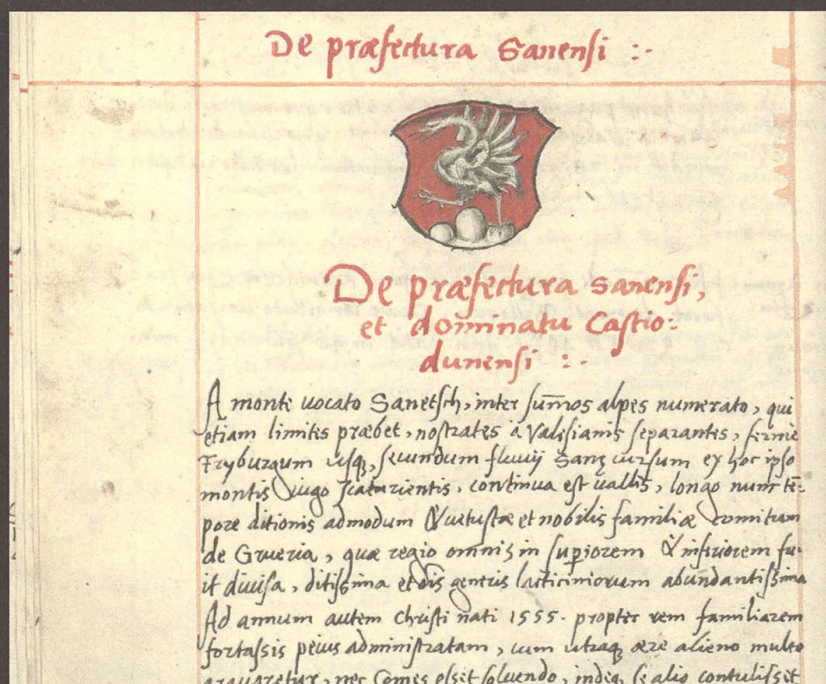 De præfectura Sanensi :-
De præfectura Sanensi,
et dominatu Castio:
dunensi :-
A monte uocato Sanetsch, inter sum̄os alpes numerato, qui
etiam limites præbet, nostrates à Valesianis separantes, ferme
Fryburgum usq, secundum fluuij Sanę cursum ex hoc ipso
montis iugo scaturientis, continua est uallis, longo nunc tē-
pore ditionis admodum & uetustæ et nobilis familiæ comitum
de Grueria, quæ regio omnis in supiorem & inferiorem fu-
it diuisa, ditissima et generis lacticiniorum abundantissima
Ad annum autem Christi nati 1555. propter rem familiarem
fortassis peius administratam, cum utraq ære alieno multo
grauaretur, nec Comes esset soluendo, se alio contulisset